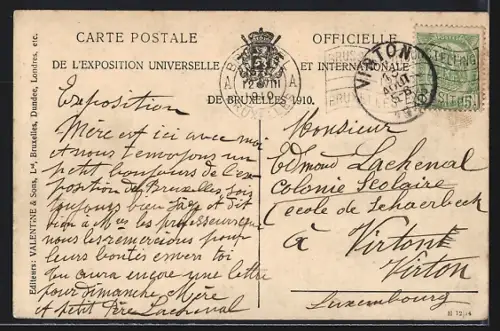 CARTE POSTALE OFFICIELLE
DE L'EXPOSITION UNIVERSELLE ET INTERNATIONALE
DE BRUXELLES 1910.
VIRTON
Exposition
Mère est ici avec moi
et nous t'envoyons un
petit bonjour de l'ex-
position de Bruxelles sois
toujours bien sage et dit
bien à Mrs les professeurs que
nous les remercions pour
leurs bontés envers toi
tu aura encore une lettre
pour Dimanche Mère
et petit Père Lachenal
Monsieur
Edmond Lachenal
Colonie Scolaire
(école de Schaerbeek
à Virton
Virton
Luxembourg)
Editeurs: VALENTINE & Sons, Ld, Bruxelles, Dundee, Londres, etc.